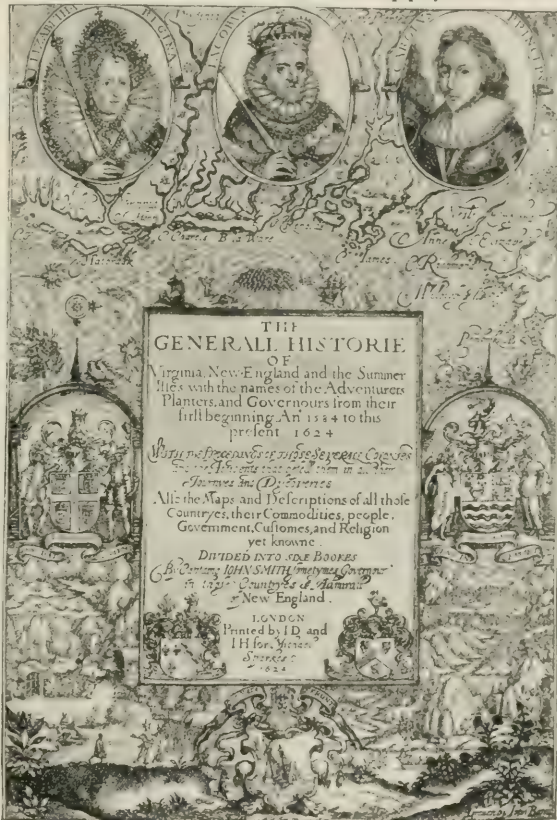 ELIZABETHA REGINA
IACOBVS
CAROLVS PRINCEPS
C. Anne
James
THE
GENERALL HISTORIE
OF
Virginia, New-England, and the Summer
Isles with the names of the Adventurers
Planters, and Governours from their
first beginning An° 1584 to this
present 1624
WITH THE PROCEEDINGS OF THOSE SEVERALL COLONIES
and the Accidents that befell them in all their
Journyes and Discoveries
Also the Maps and Descriptions of all those
Countryes, their Commodities, people,
Government, Customes, and Religion
yet knowne.
DIVIDED INTO SIXE BOOKES
By Captaine IOHN SMITH sometymes Governour
in those Countryes & Admirall
of New England.
LONDON
Printed by I.D. and
I.H. for Michael
Sparkes
1624